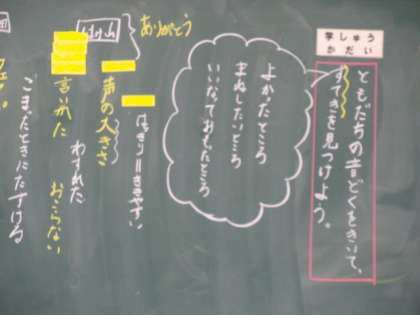 学しゅう
かだい
ともだちの音どくをきいて、
すてきを見つけよう。
よかったところ
まねしたいところ
いいなっておもったところ
ありがとう
はっきり=ききやすい
声の大きさ
わすれた
おこらない
言いかた
こまったときにたすける